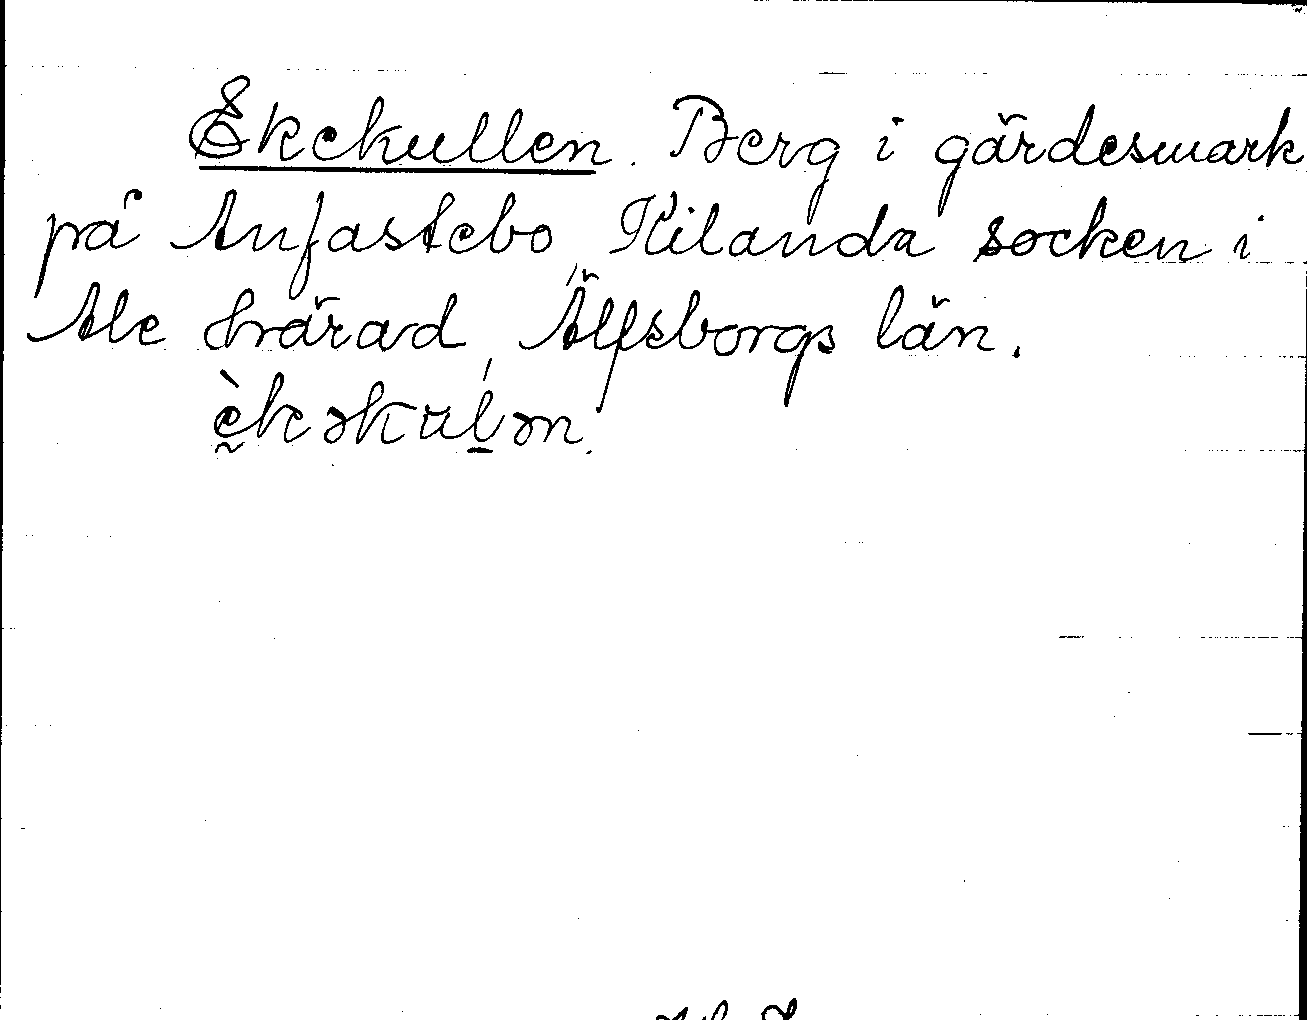 Ekekullen. Berg i gärdesmark
på Anfastebo, Kilanda socken i
Ale härad, Älfsborgs län.
ḛ̀kəkul̠ən.